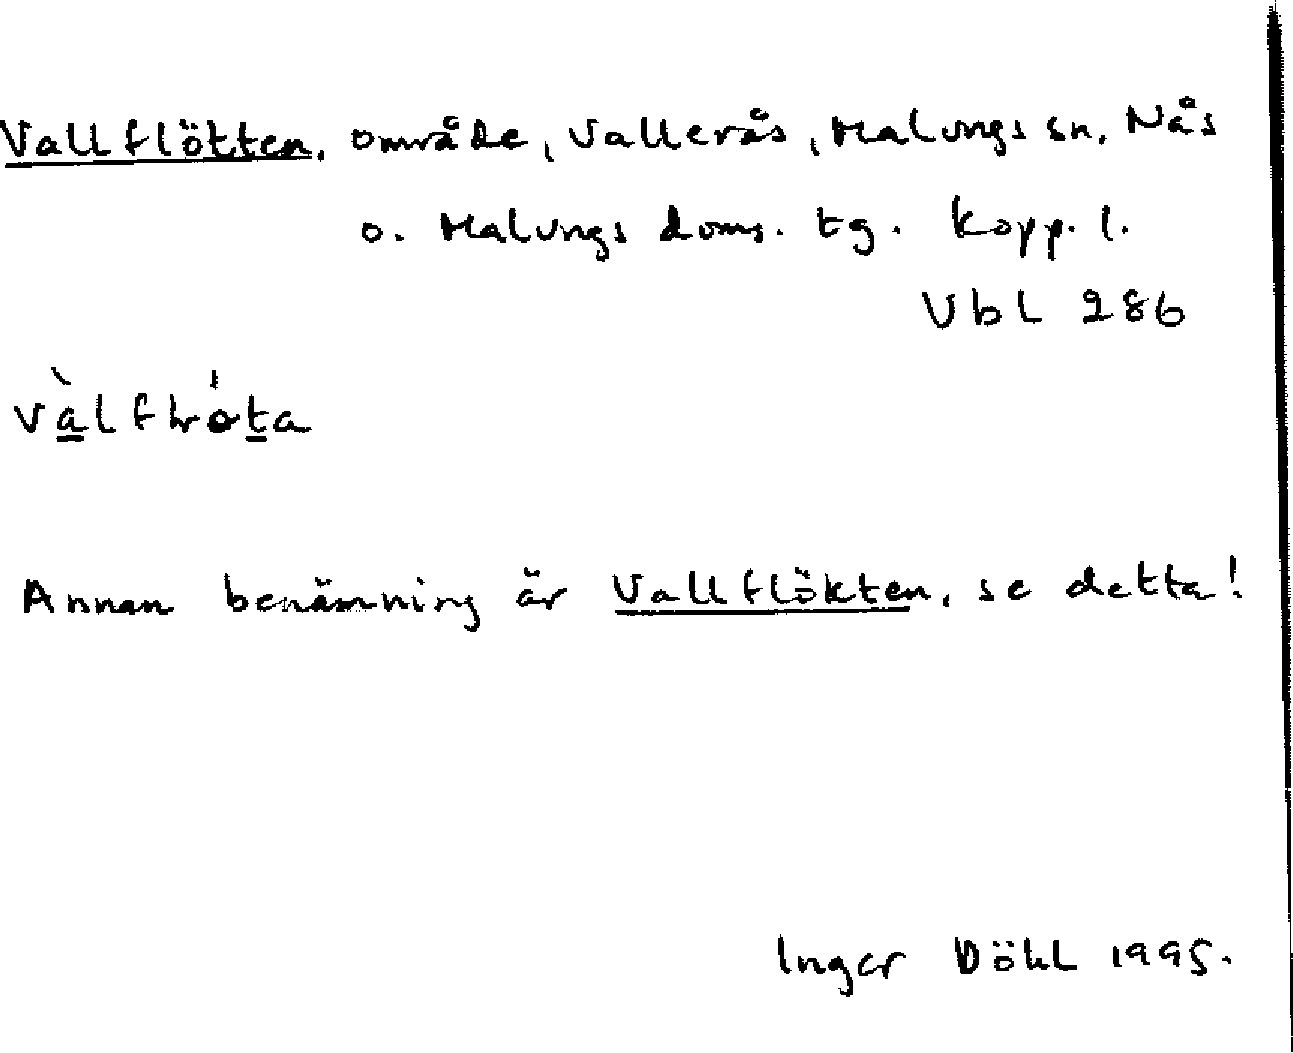 Vallflötten, område, Vallerås, Malungs sn, Nås
o. Malungs doms. tg. Kopp. l.
Vbl 286
Annan benämning är Vallflökten, se detta!
Inger Döhl 1995.